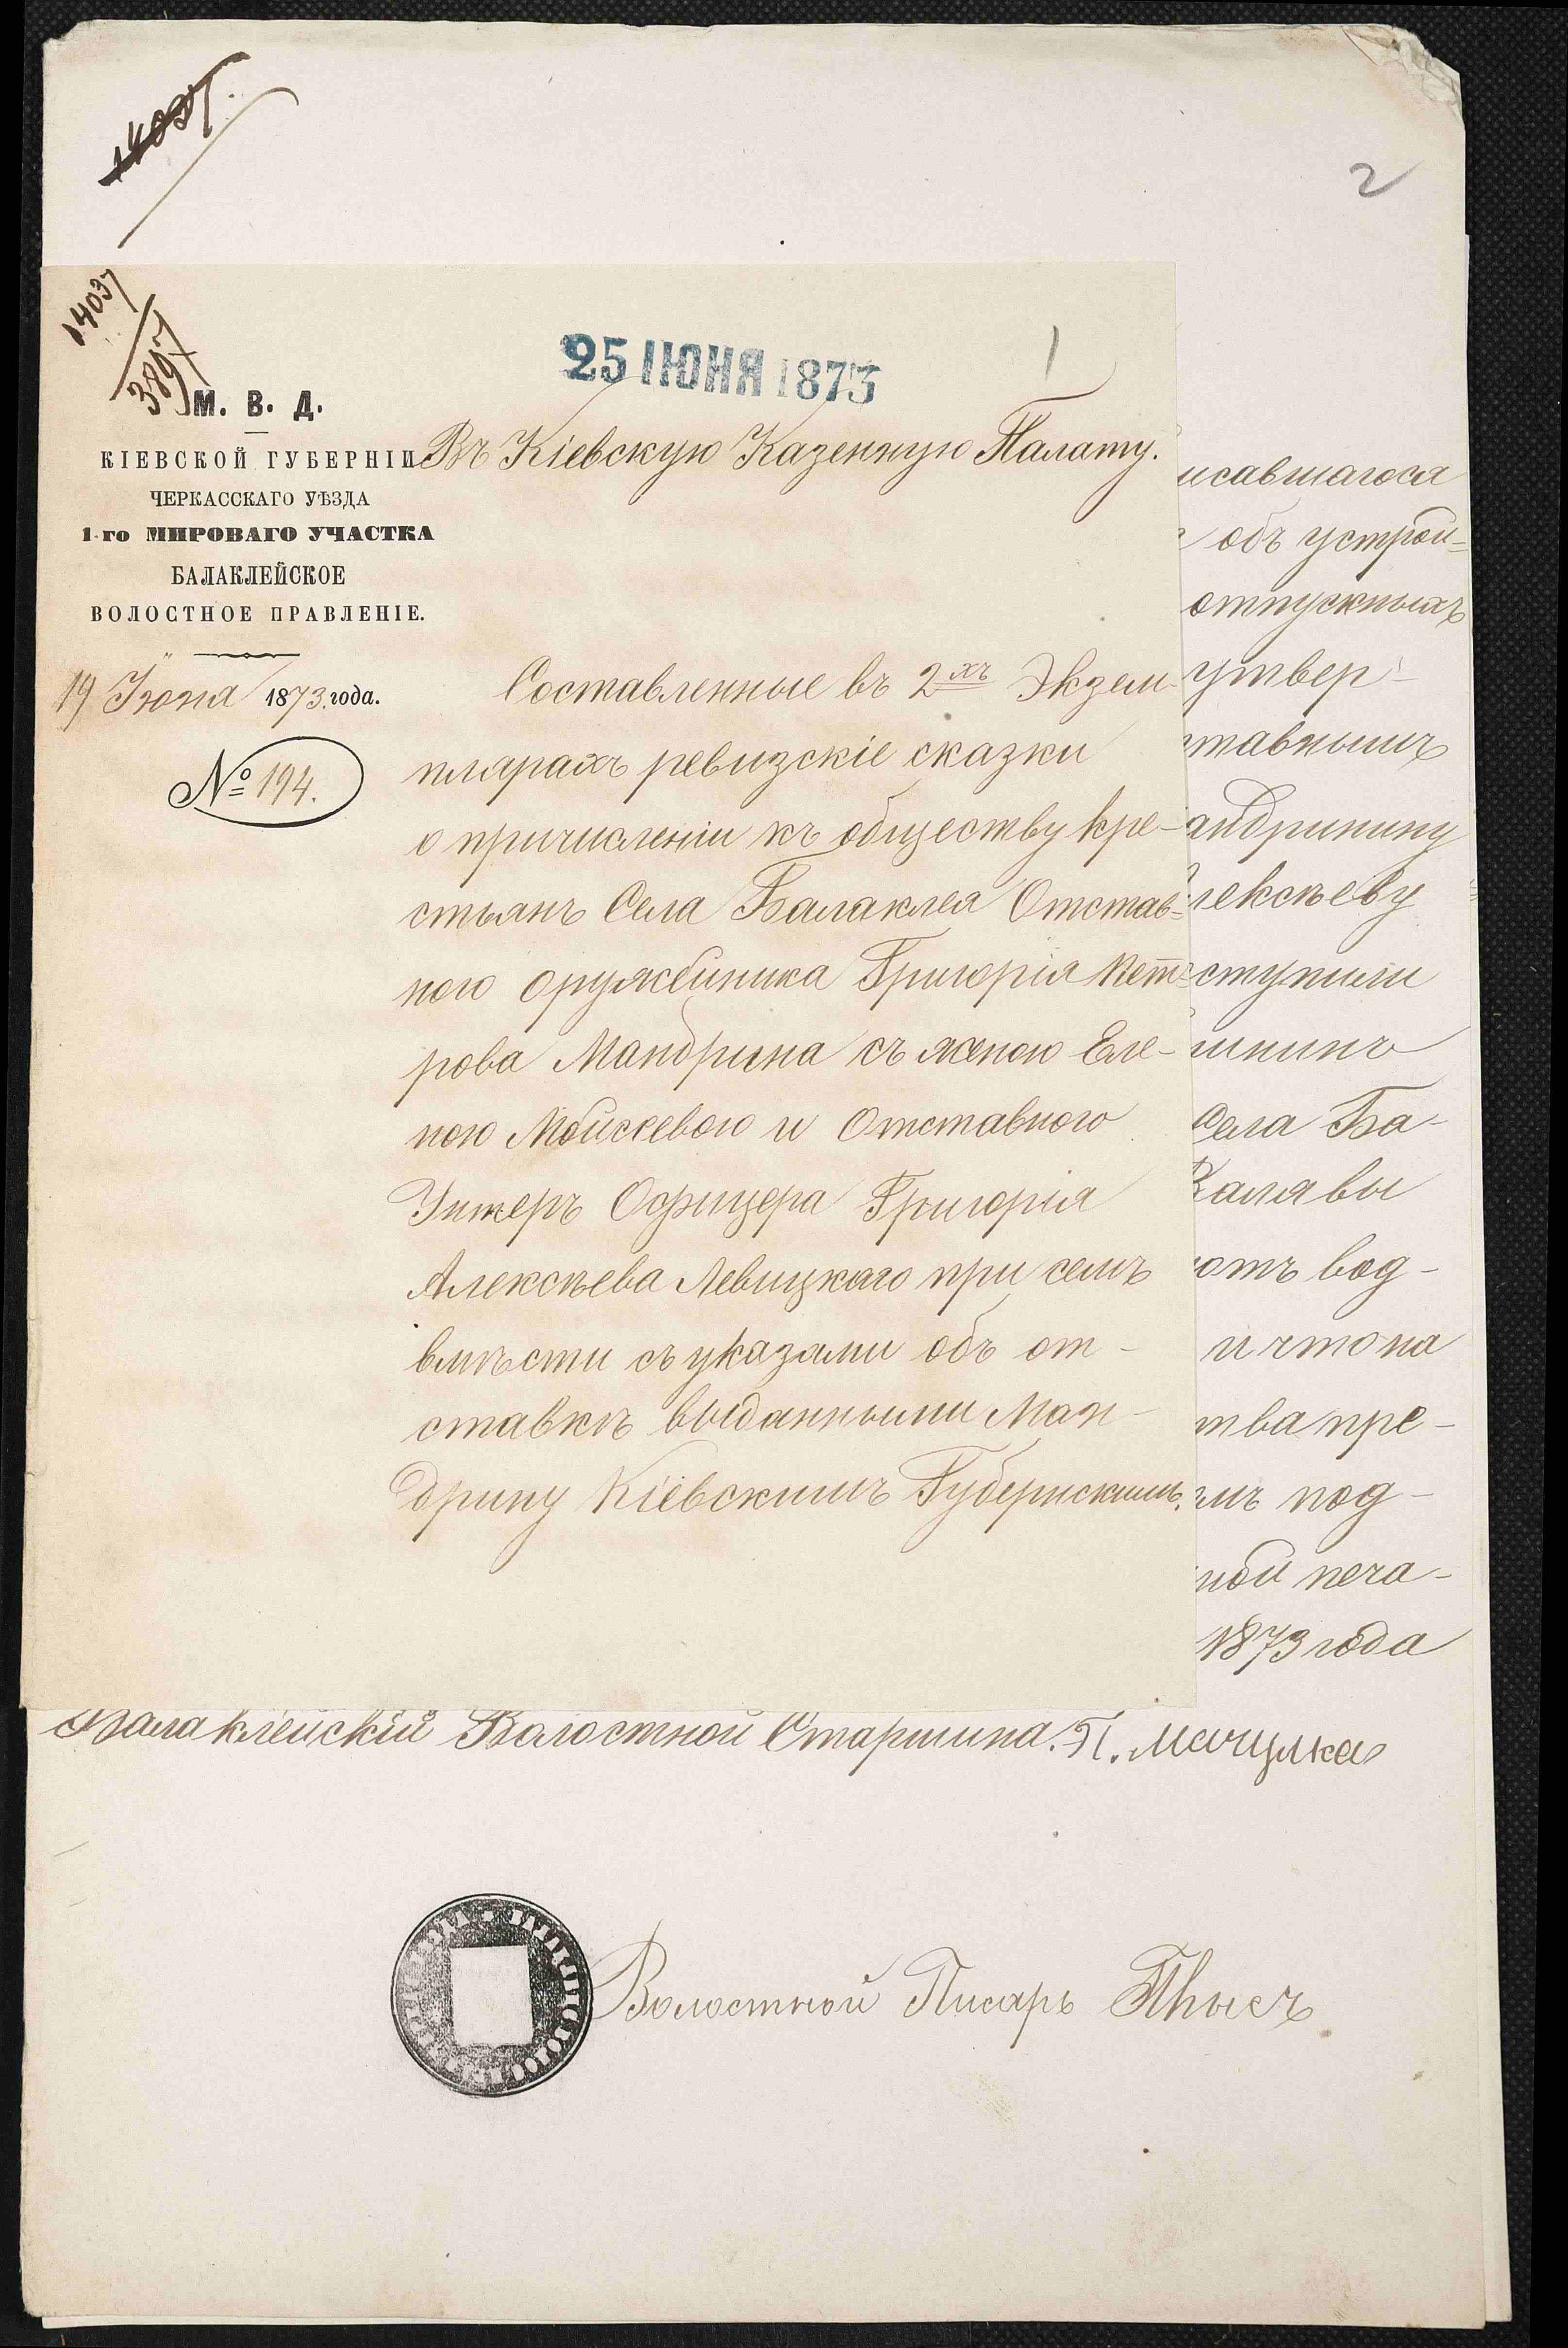 2
14037
3897
25 ІЮНЯ 1873
1
М. В. Д.
КІЕВСКОЙ ГУБЕРНІИ
ЧЕРКАССКАГО УѢЗДА
1-го МИРОВАГО УЧАСТКА
БАЛАКЛЕЙСКОЕ
ВОЛОСТНОЕ ПРАВЛЕНІЕ.
19 Іюня 1873 года.
№ 194.
Въ Кіевскую Казенную Палату.
Составленные въ 2хъ Экзем-
плярахъ ревизскіе сказки
о причисленіи къ обществу кре-
стьянъ Села Балаклея Отстав=
ного оружейника Григорія Пет=
рова Мандрина съ женою Еле-
ною Мойсеевою и Отставного
Унтеръ Офицера Григорія
Алексѣева Левицкаго при семъ
вмѣсти съ указами объ от-
ставкѣ выданными Ман-
дрину Кіевскимъ Губернскимъ
исавшагося
объ устрой=
отпускныхъ
утвер-
ставнымъ
андрикину
лексѣеву
ступили
Села Ба-
отъ вод-
и что на
тва пре-
мъ под-
ной печа-
1873 года
Балаклейскій Волостной Старшина. П. Мачулка
Волостной Писарь